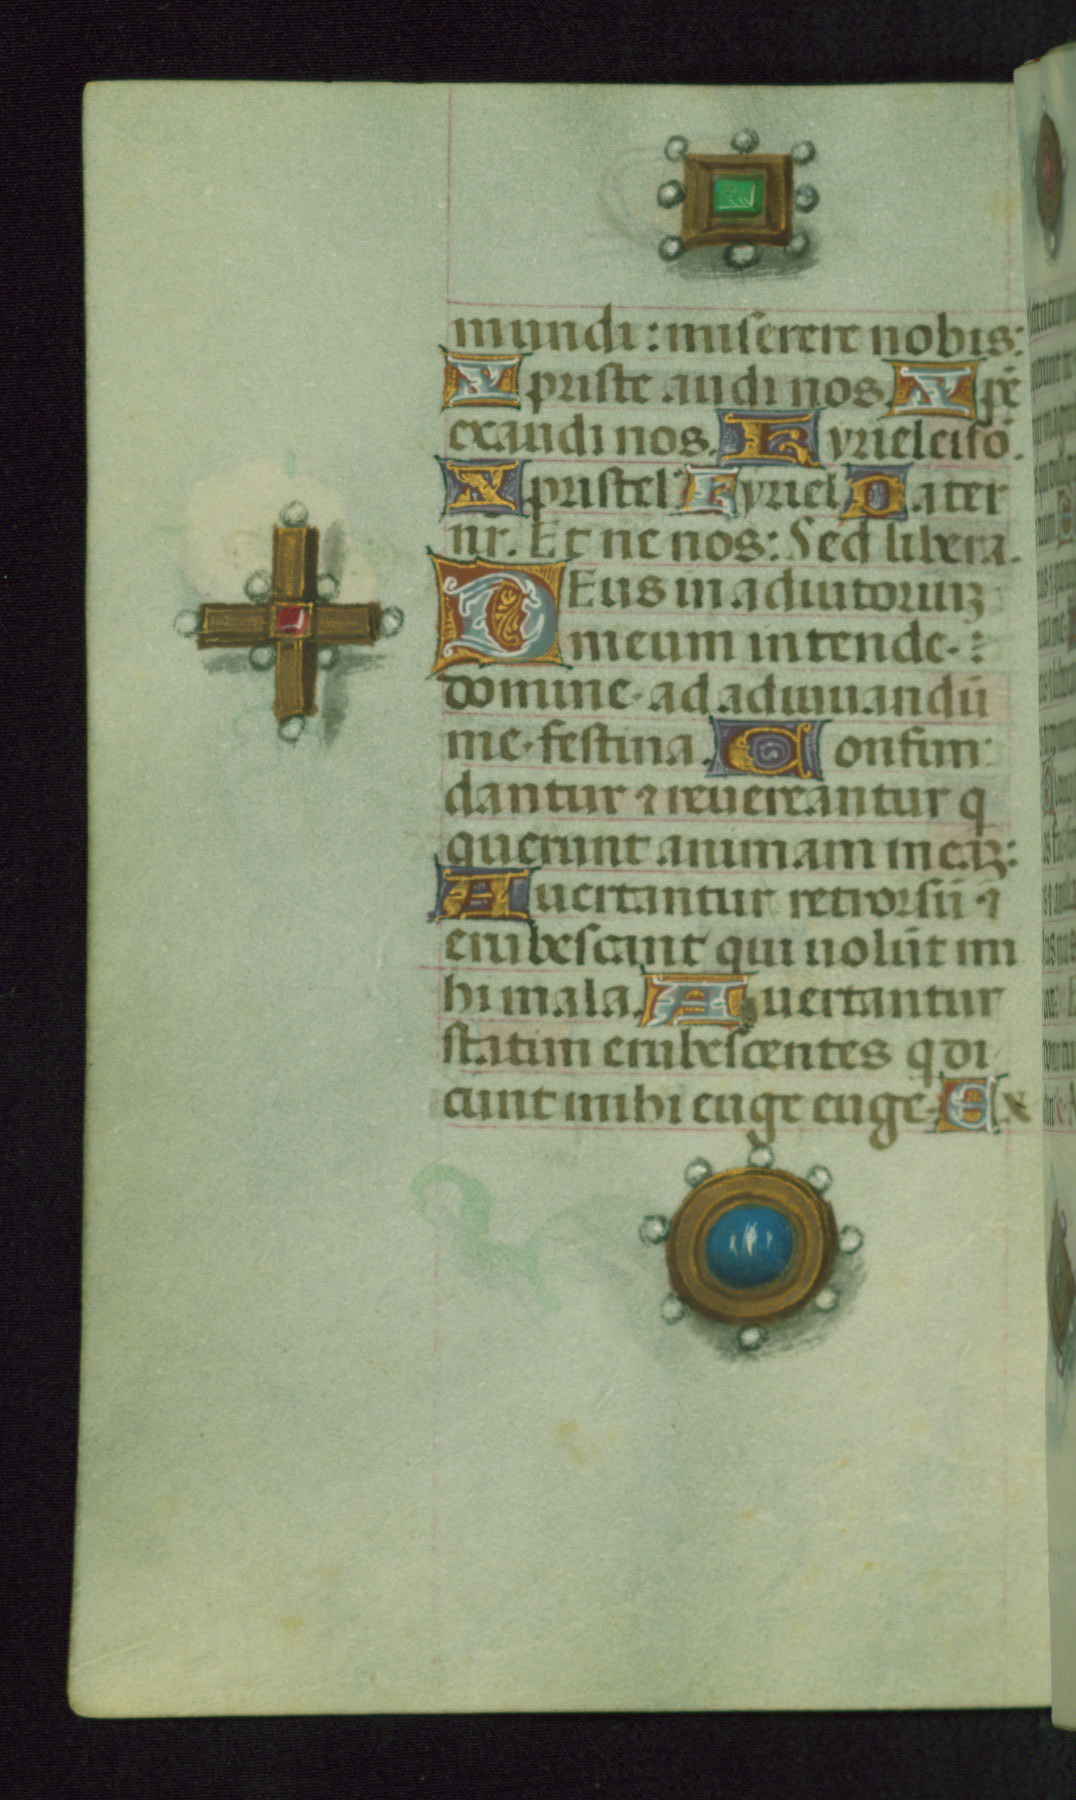 mundi: miserere nobis:
Xpriste audi nos. Xpē
exaudi nos. Kyrieleisō.
Xpristel' Kyriel' Pater
nr. Et ne nos: Sed libera.
DEus in adiutoriuꝫ
meum intende:
domine ad adiuuandū
me festina. Confun
dantur ⁊ reuereantur q
querunt animam meaꝫ:
Auertantur retrorsū ⁊
erubescant qui uolūt mi
hi mala. Auertantur
statim erubescentes q di
cunt mihi euge euge. Ex